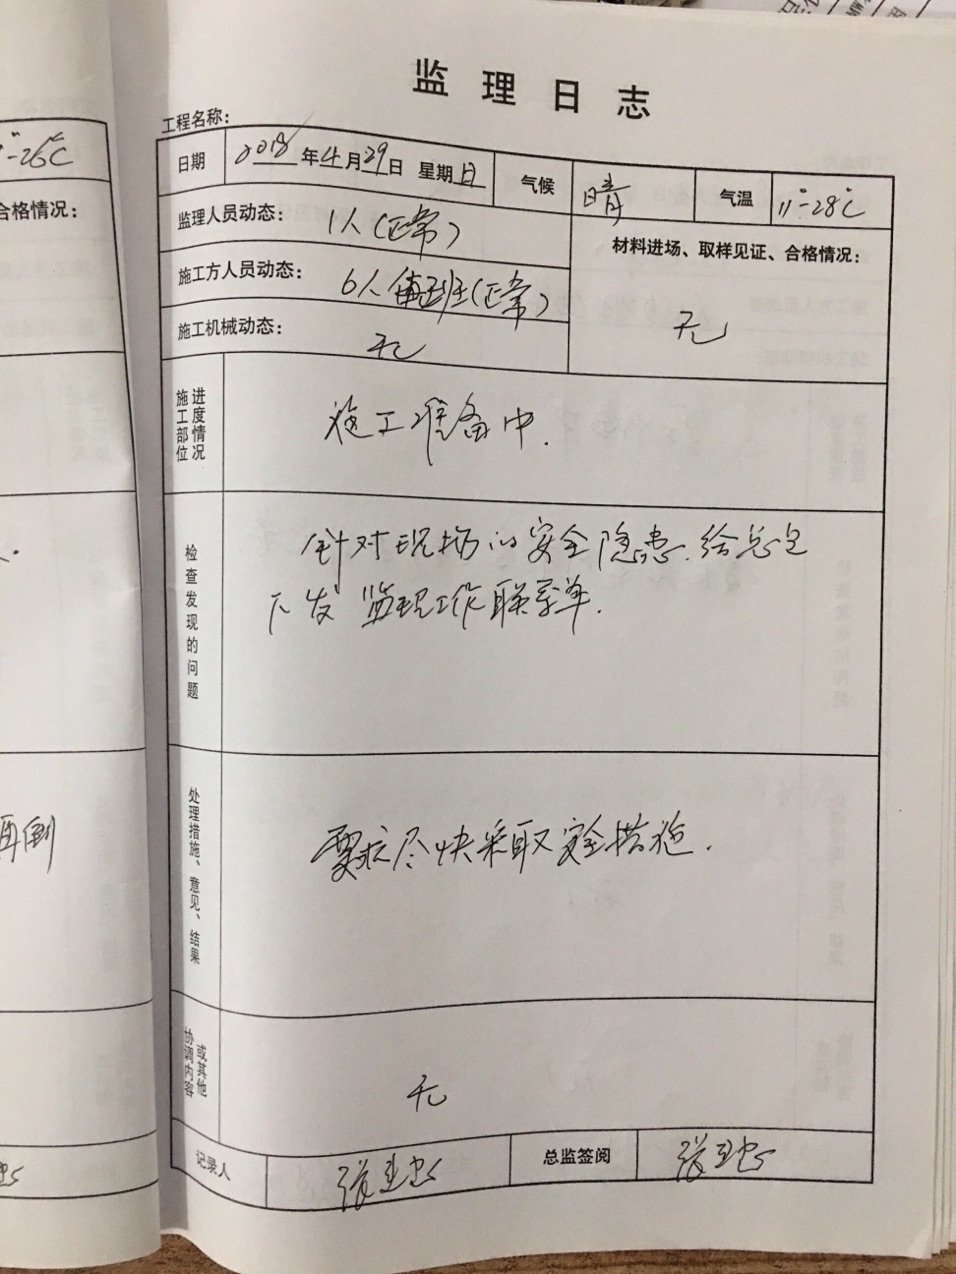 监理日志
工程名称：
日期 2018年4月29日 星期日 气候 晴 气温 11°-28℃
监理人员动态： 1人(正常)
材料进场、取样见证、合格情况：
施工方人员动态： 6人 班(正常)
无
施工机械动态： 无
施工部位进度情况
施工准备中.
检查发现的问题
针对现场的安全隐患.给总包
下发监理工作联系单.
处理措施、意见、结果
要求尽快采取安全措施.
协调内容或其他
无
记录人 张 总监签阅 张
-26℃
合格情况：
再倒